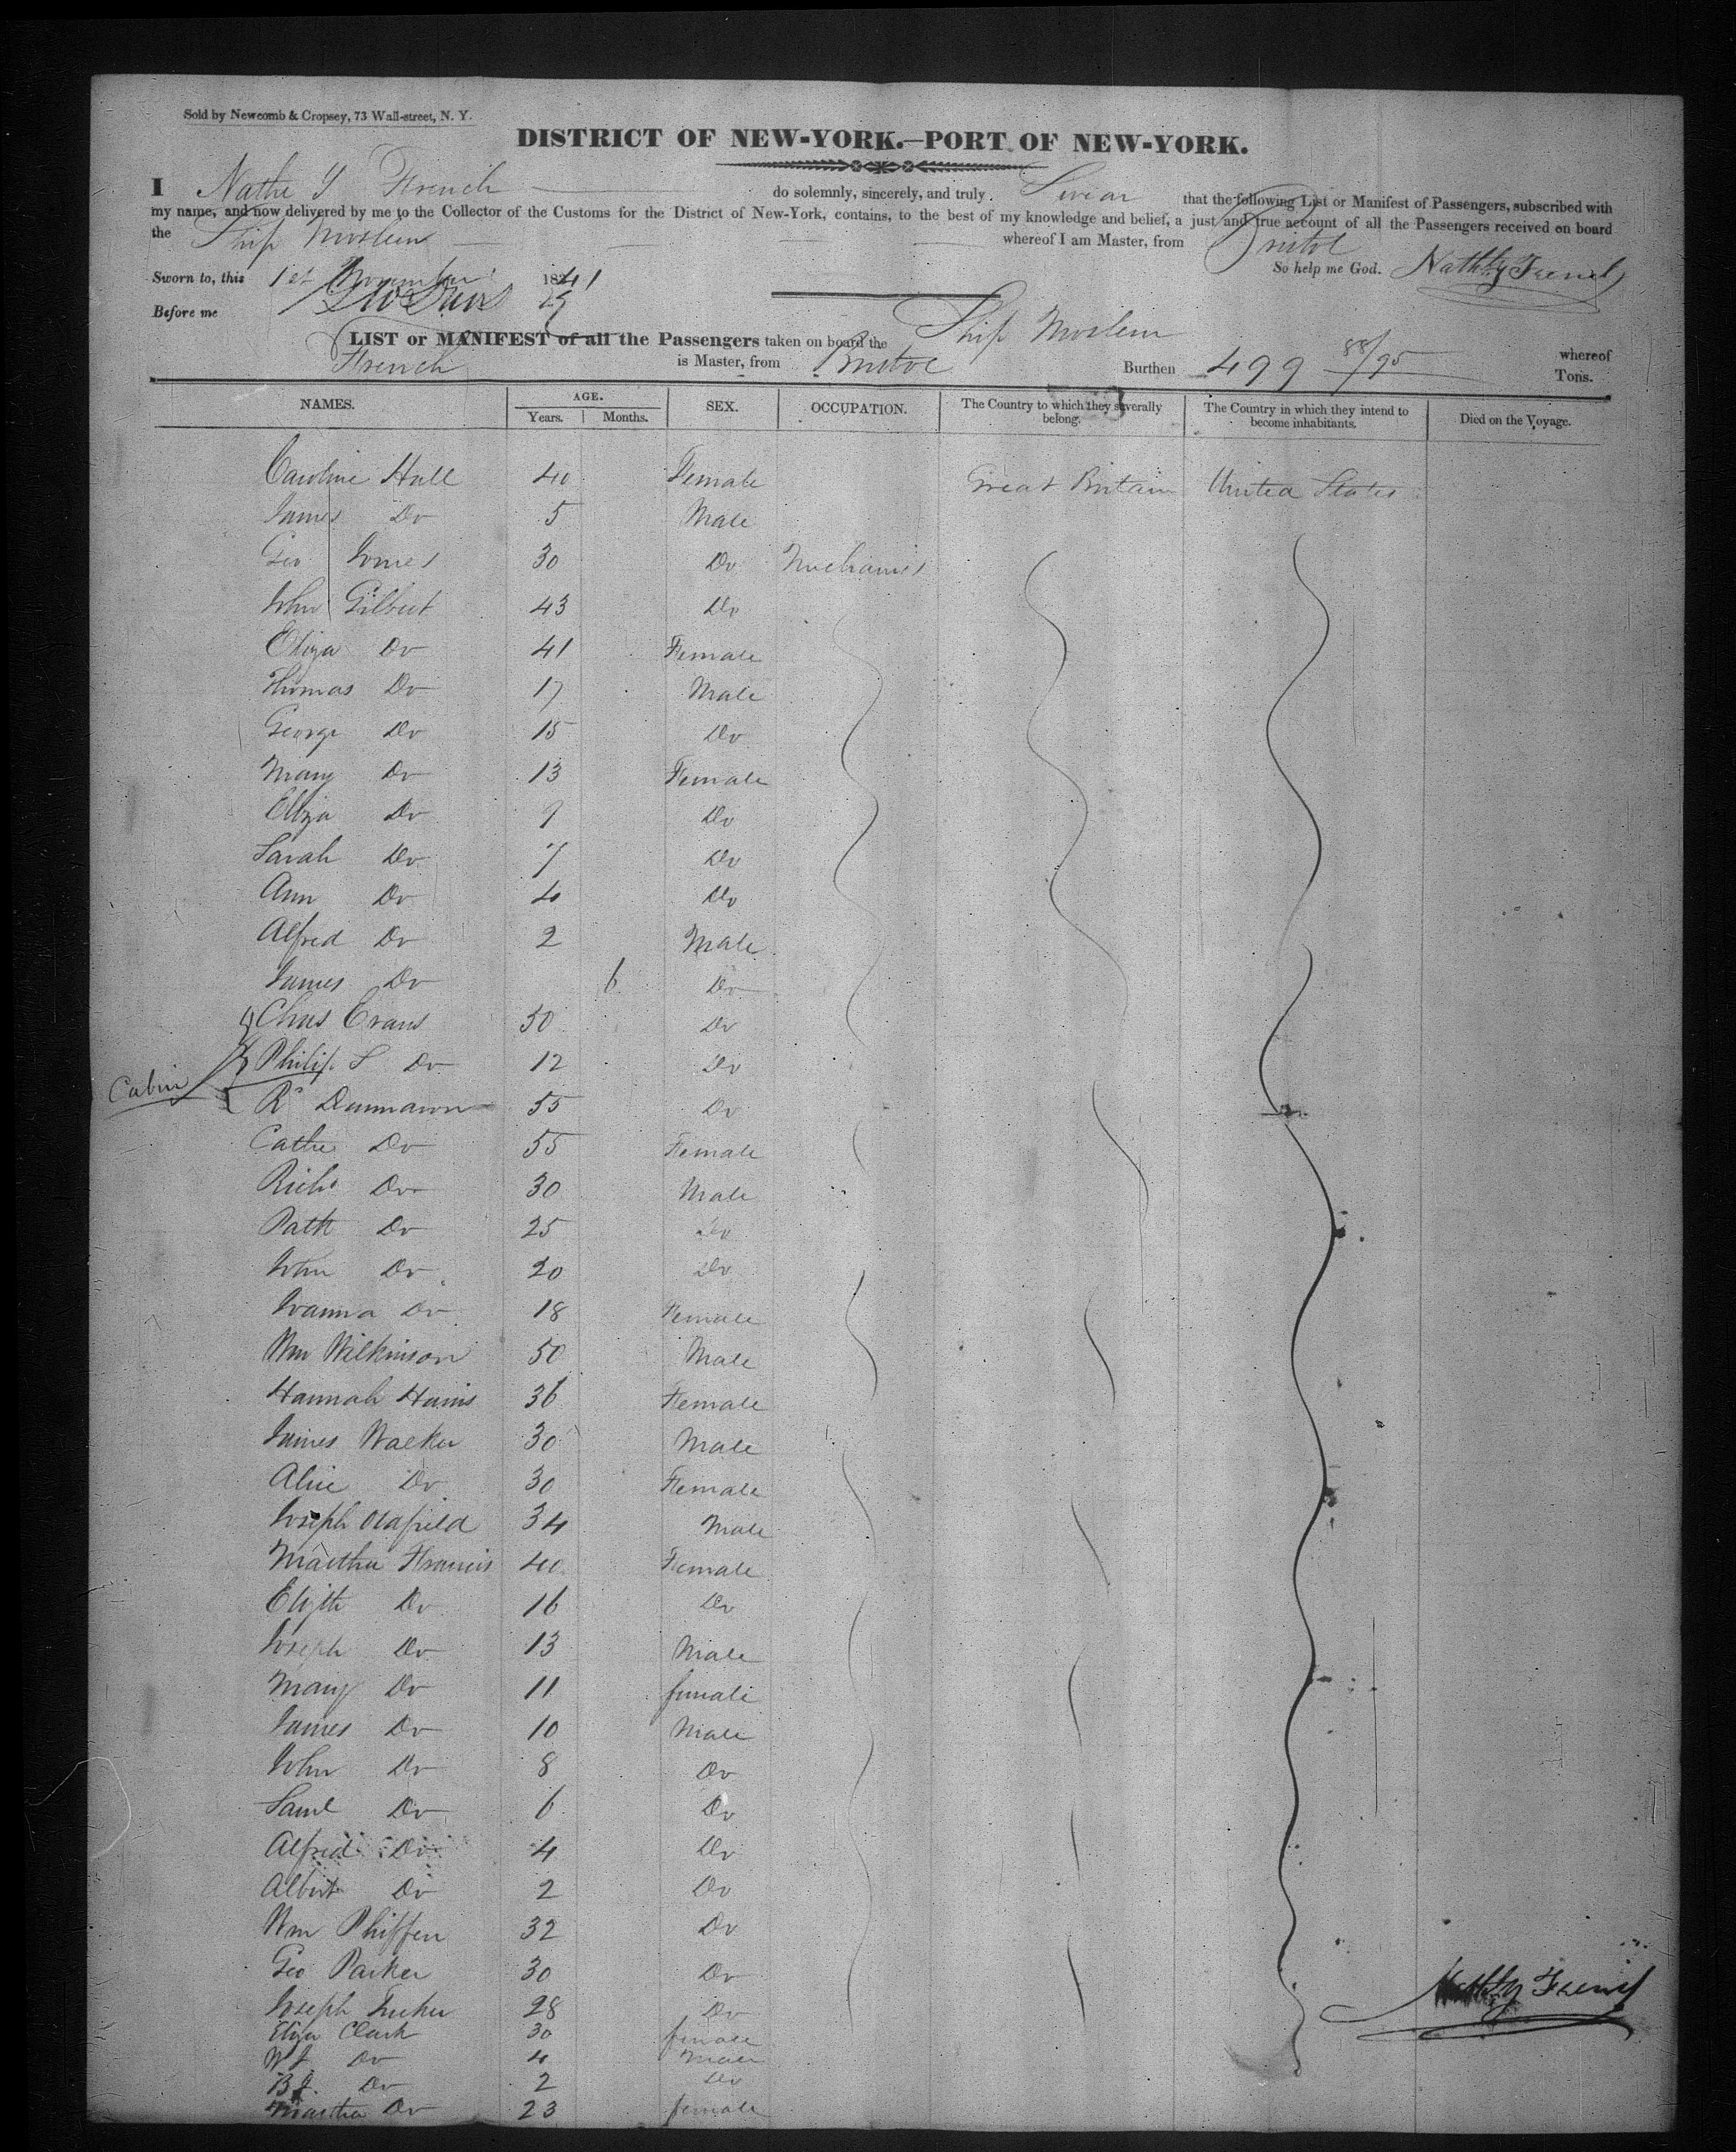 Sold by Newcomb & Cropsey, 73 Wall-street, N. Y.
DISTRICT OF NEW-YORK.—PORT OF NEW-YORK.
I Nathl G French do solemnly, sincerely, and truly Swear that the following List or Manifest of Passengers, subscribed with
my name, and now delivered by me to the Collector of the Customs for the District of New-York, contains, to the best of my knowledge and belief, a just and true account of all the Passengers received on board
the Ship Moslem whereof I am Master, from Bristol
Sworn to, this 1st November 1841 So help me God. Nathl G French
Before me
LIST or MANIFEST of all the Passengers taken on board the Ship Moslem whereof
French is Master, from Bristol Burthen 499 88/95 Tons.
NAMES. AGE. Years. Months. SEX. OCCUPATION. The Country to which they severally belong. The Country in which they intend to become inhabitants. Died on the Voyage.
Caroline Hall 40 Female Great Britain United States
James Do 5 Male
Geo Jones 30 Do Mechanics
John Gilbert 43 Do
Eliza Do 41 Female
Thomas Do 17 Male
George Do 15 Do
Mary Do 13 Female
Eliza Do 9 Do
Sarah Do 7 Do
Ann Do 4 Do
Alfred Do 2 Male
James Do 6 Do
Chas Evans 50 Do
Philip S Do 12 Do
Cabin
Rd 55 Do
Cathe Do 55 Female
Richd Do 30 Male
Patk Do 25 Do
John Do 20 Do
Joanna Do 18 Female
Wm Wilkinson 50 Male
Hannah Harris 36 Female
James Walker 30 Male
Alice Do 30 Female
Joseph Oldfield 34 Male
Martha Francis 40 Female
Elizth Do 16 Do
Joseph Do 13 Male
Mary Do 11 female
James Do 10 Male
John Do 8 Do
Saml Do 6 Do
Alfred Do 4 Do
Albert Do 2 Do
Wm Phiffen 32 Do
Geo Parker 30 Do
Nathl G French
Joseph Tucker 28 Do
Eliza Clark 30 female
W J Do 4 Male
B J. Do 2 Do
Martha Do 23 female